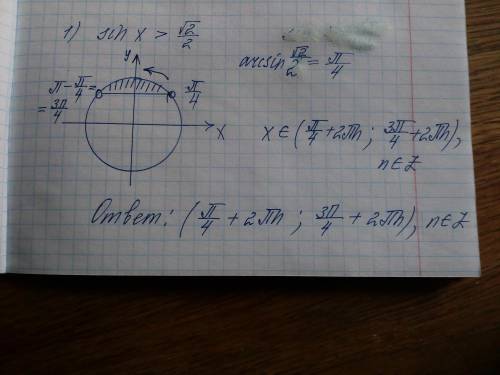 1) sin x > √2/2
arcsin √2/2 = π/4
y
π - π/4 =
= 3π/4
π/4
x
x ∈ (π/4 + 2πn ; 3π/4 + 2πn),
n ∈ Z
Ответ: (π/4 + 2πn ; 3π/4 + 2πn), n ∈ Z